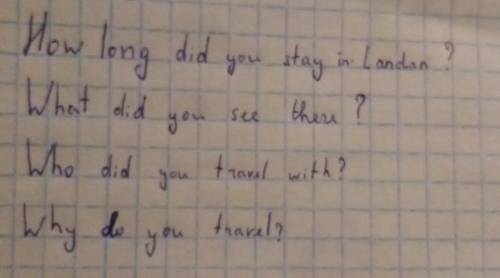 How long did you stay in Landan?
What did you see there?
Who did you travel with?
Why do you travel?